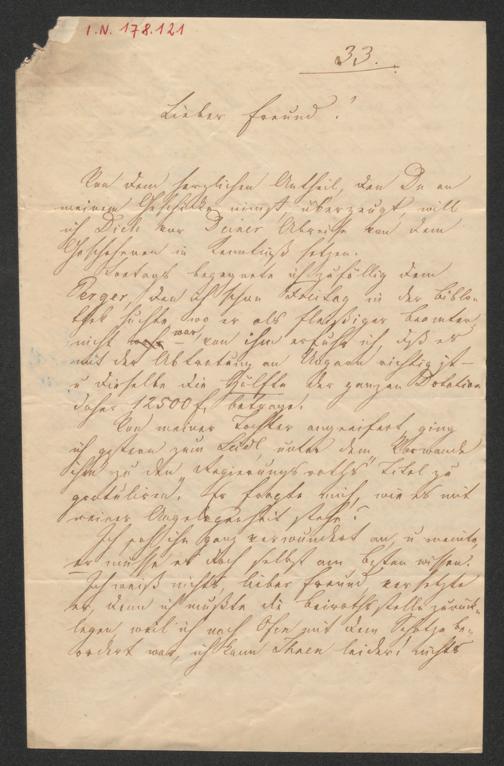 I.N. 178.121
33.
Lieber Freund!
Von dem herzlichen Antheil, den Du an
meinem Geschicke nimst überzeugt, will
ich Dich vor Deiner Abreise von dem
Geschehenen in Kenntniß setzen.
begegnete ich zufällig dem
Perger, den ich schon Freitag in der Biblio-
thek suchte, wo er als fleißiger Beamter
nicht war, von ihm erfuhr ich, dß es
mit der Abtretung an Ungarn richtig ist –
u dieselbe die Hälfte der ganzen Dotation
daher 12500 f. betrage.
Von meiner Tochter angeeifert, ging
ich gestern zum unter dem Vorwande
ihm zu den „Regierungsraths" Titel zu
gratuliren. Er fragte mich, wie es mit
meiner Angelegenheit stehe?
Ich sah ihn ganz verwundert an, u meinte,
er müsse es doch selbst am besten wissen.
Ich weiß nichts lieber Freund versetzte
er, denn ich mußte die Beirathsstelle zurück-
legen weil ich nach Ofen mit dem Schatze be-
ordert war, ich kann Ihnen leider! nichts